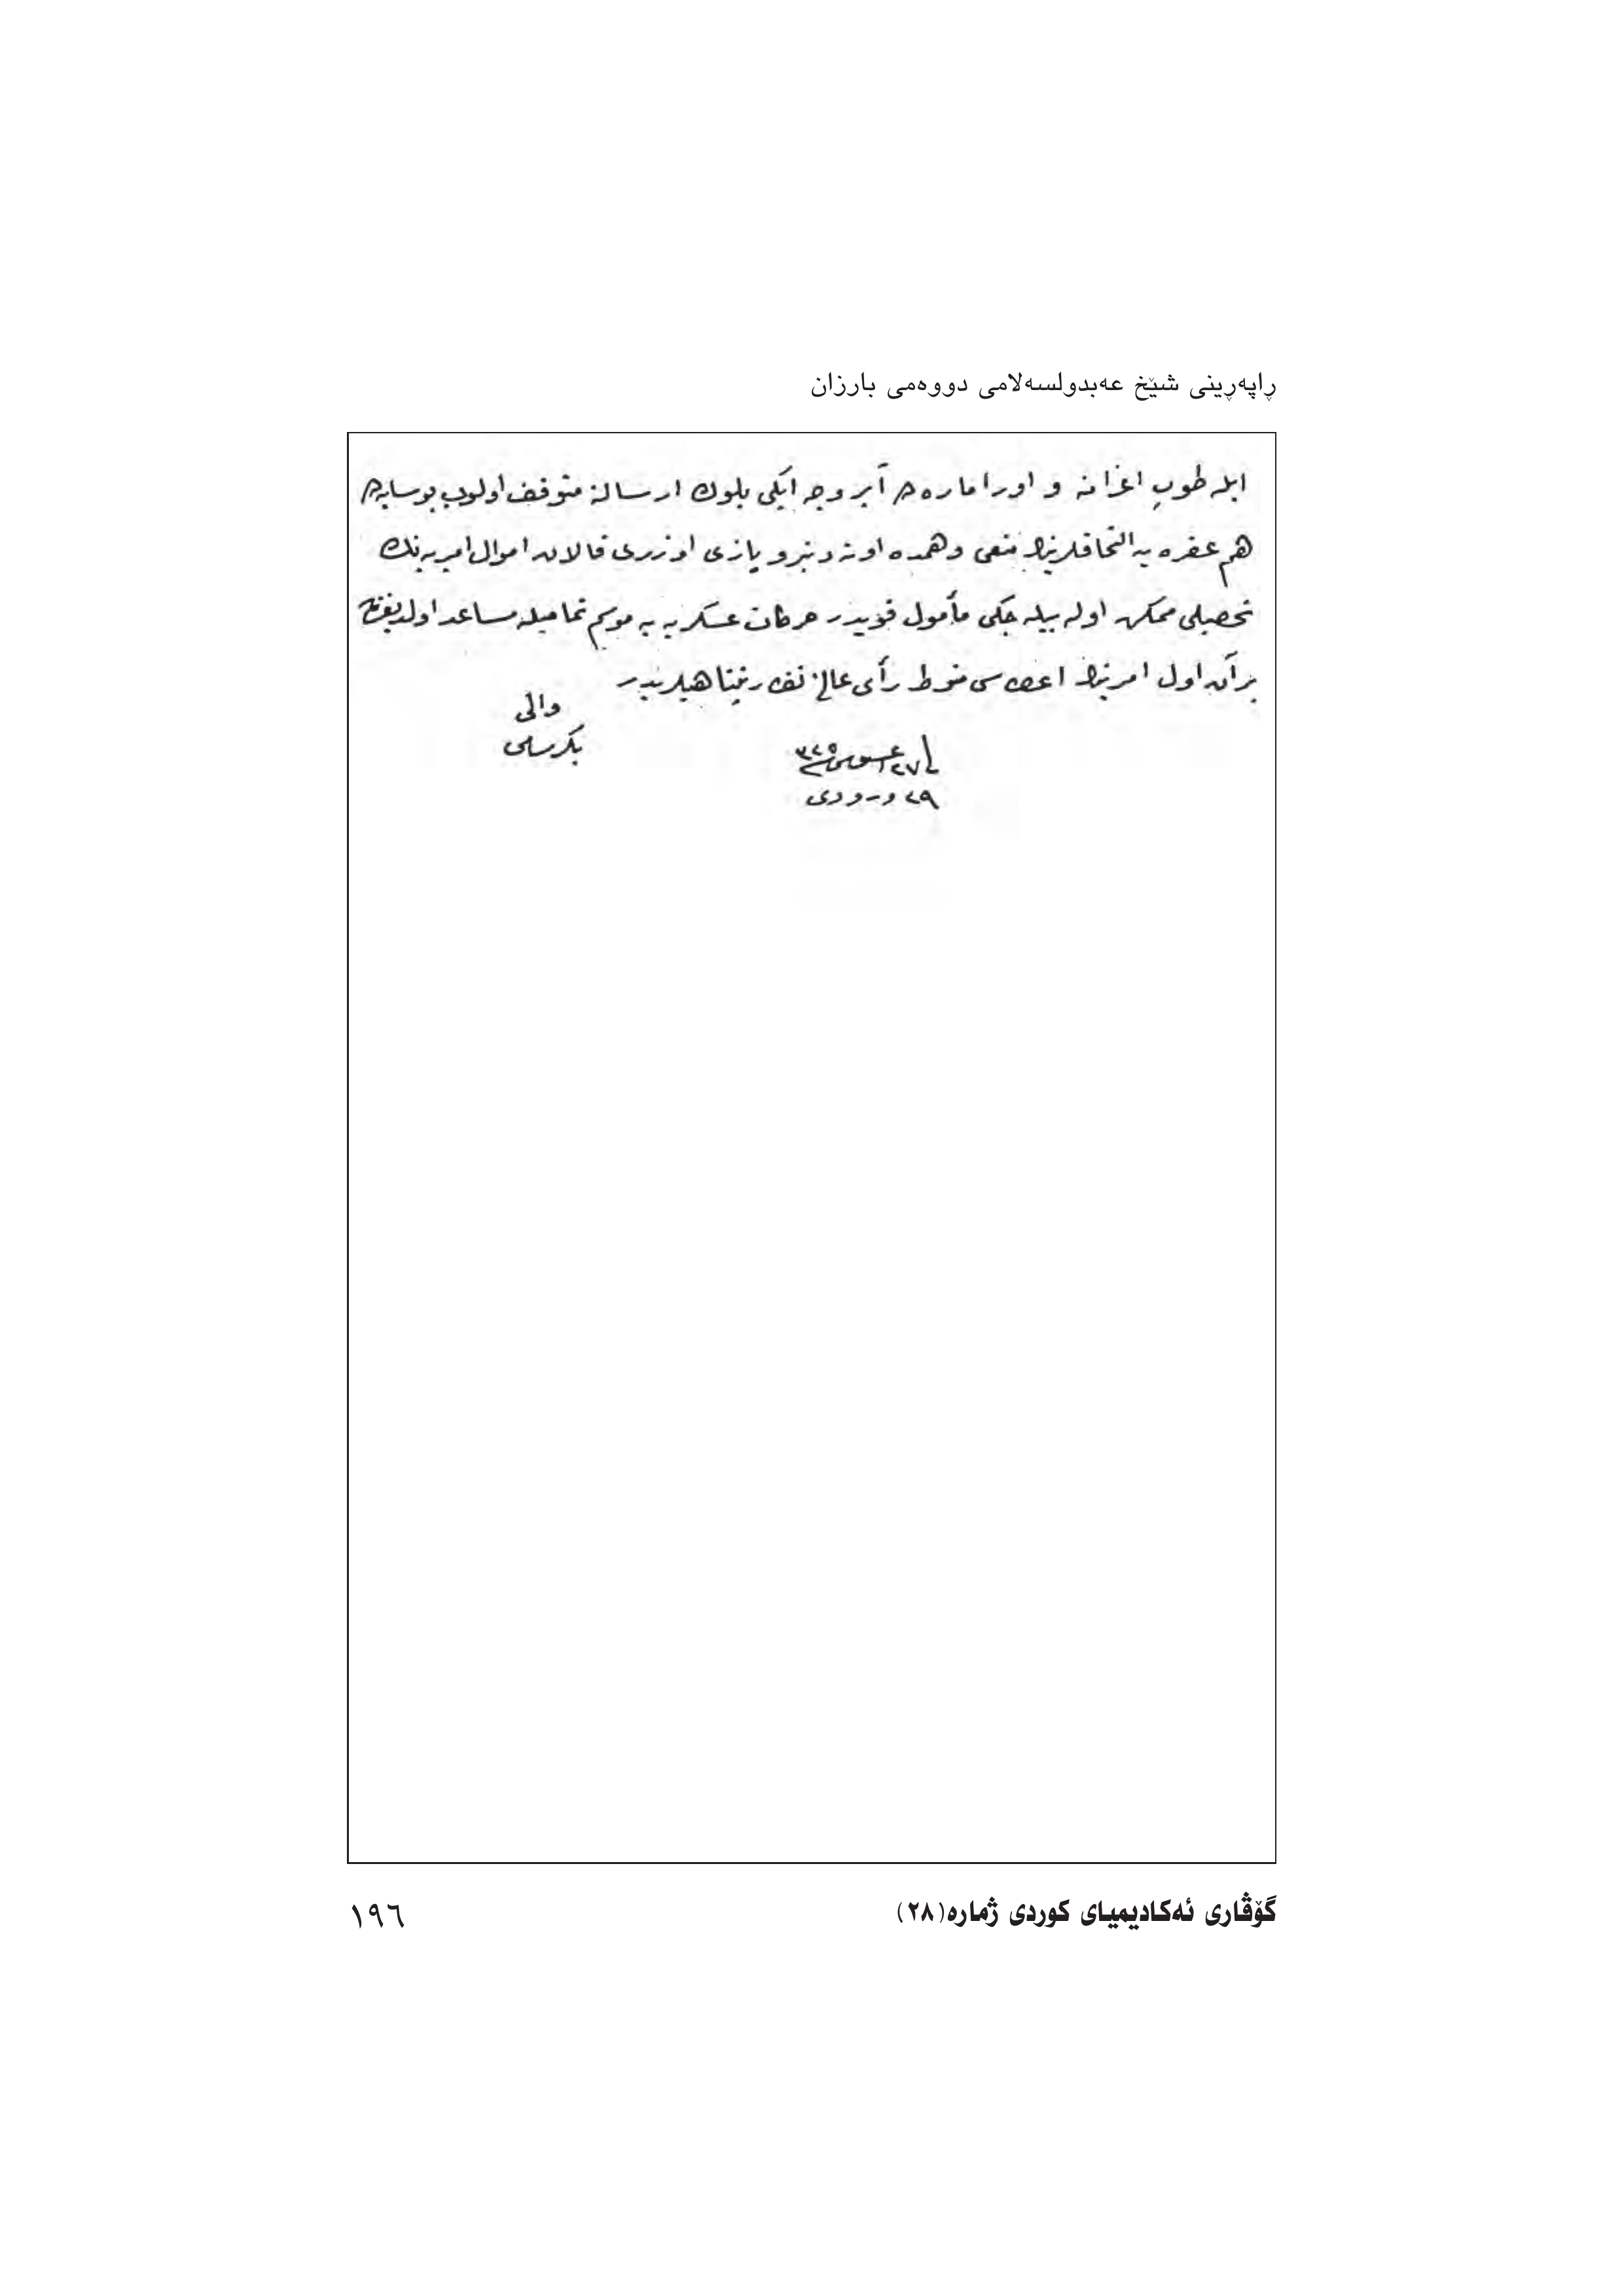 ڕاپەڕینی شێخ عەبدولسەلامی دووەمی بارزان
ایله طوپ اغزانه و اورامارده آیروجه ایکی بلوك ارسالنه متوقف اولوب بوسایه‌ده
هم عقره یه التحاقلرینك منعی وهمده اوته دنبرو یازی اوزری قالان اموال امیریه‌نك
تحصیلی ممکن اوله بیله جکی مأمول قویدر حرکات عسکریه یه موسم تمامیله مساعد اولدیغندن
بر آن اول امرینك اعطاسی منوط رأی عالئ نظارتپناهیلریدر
والی
بکر سامی
فی ٢٧ اغستوس سنه ٣٢٥
٢٩ ورودی
گۆڤاری ئەکادیمیای کوردی ژمارە(٢٨)
١٩٦